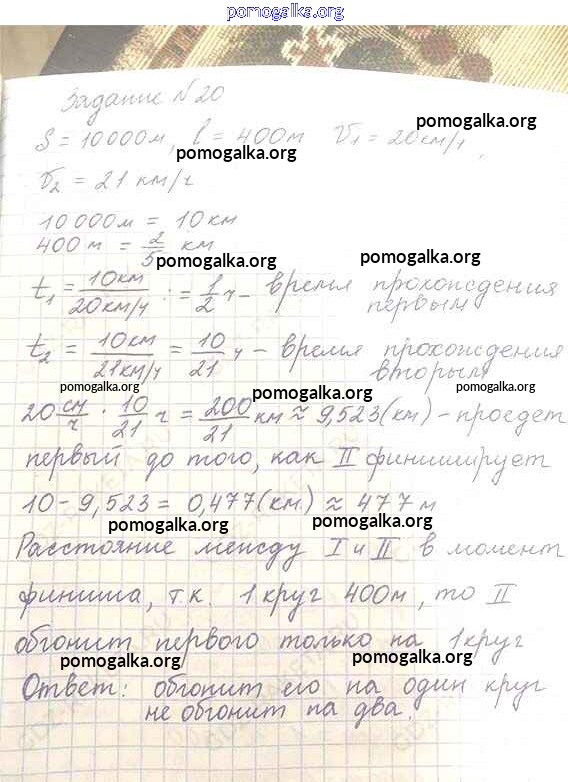 pomogalka.org
Задание №20
pomogalka.org
S = 10 000м, l = 400м V₁ = 20км/ч,
pomogalka.org
V₂ = 21 км/ч
10 000м = 10 км
400 м = 2/5 км
pomogalka.org
pomogalka.org
t₁ = 10км/20км/ч := 1/2 ч - время прохождения
первым
t₂ = 10км/21км/ч = 10/21 ч - время прохождения
вторым
pomogalka.org
pomogalka.org
pomogalka.org
20 см/ч · 10/21 ч = 200/21 км ≈ 9,523(км) - проедет
первый до того, как II финиширует
10 - 9,523 = 0,477(км) ≈ 477 м
pomogalka.org
pomogalka.org
Расстояние между I и II в момент
финиша, т.к. 1 круг 400м, то II
обгонит первого только на 1 круг
pomogalka.org
pomogalka.org
Ответ: обгонит его на один круг
не обгонит на два.